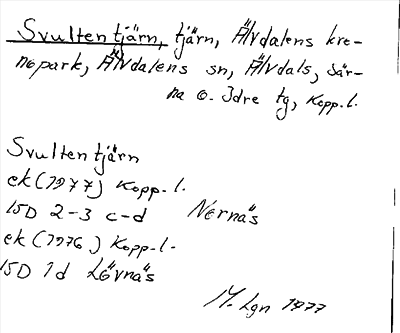 Svultentjärn, tjärn, Älvdalens kro-
nopark, Älvdalens sn, Älvdals, Sär-
na o. Idre tg, Kopp. l.
Svultentjärn
ek (1977) Kopp. l.
15D 2-3 c-d Nernäs
ek (1976) Kopp. l.
15D 1d Lövnäs
M. Lgn 1977